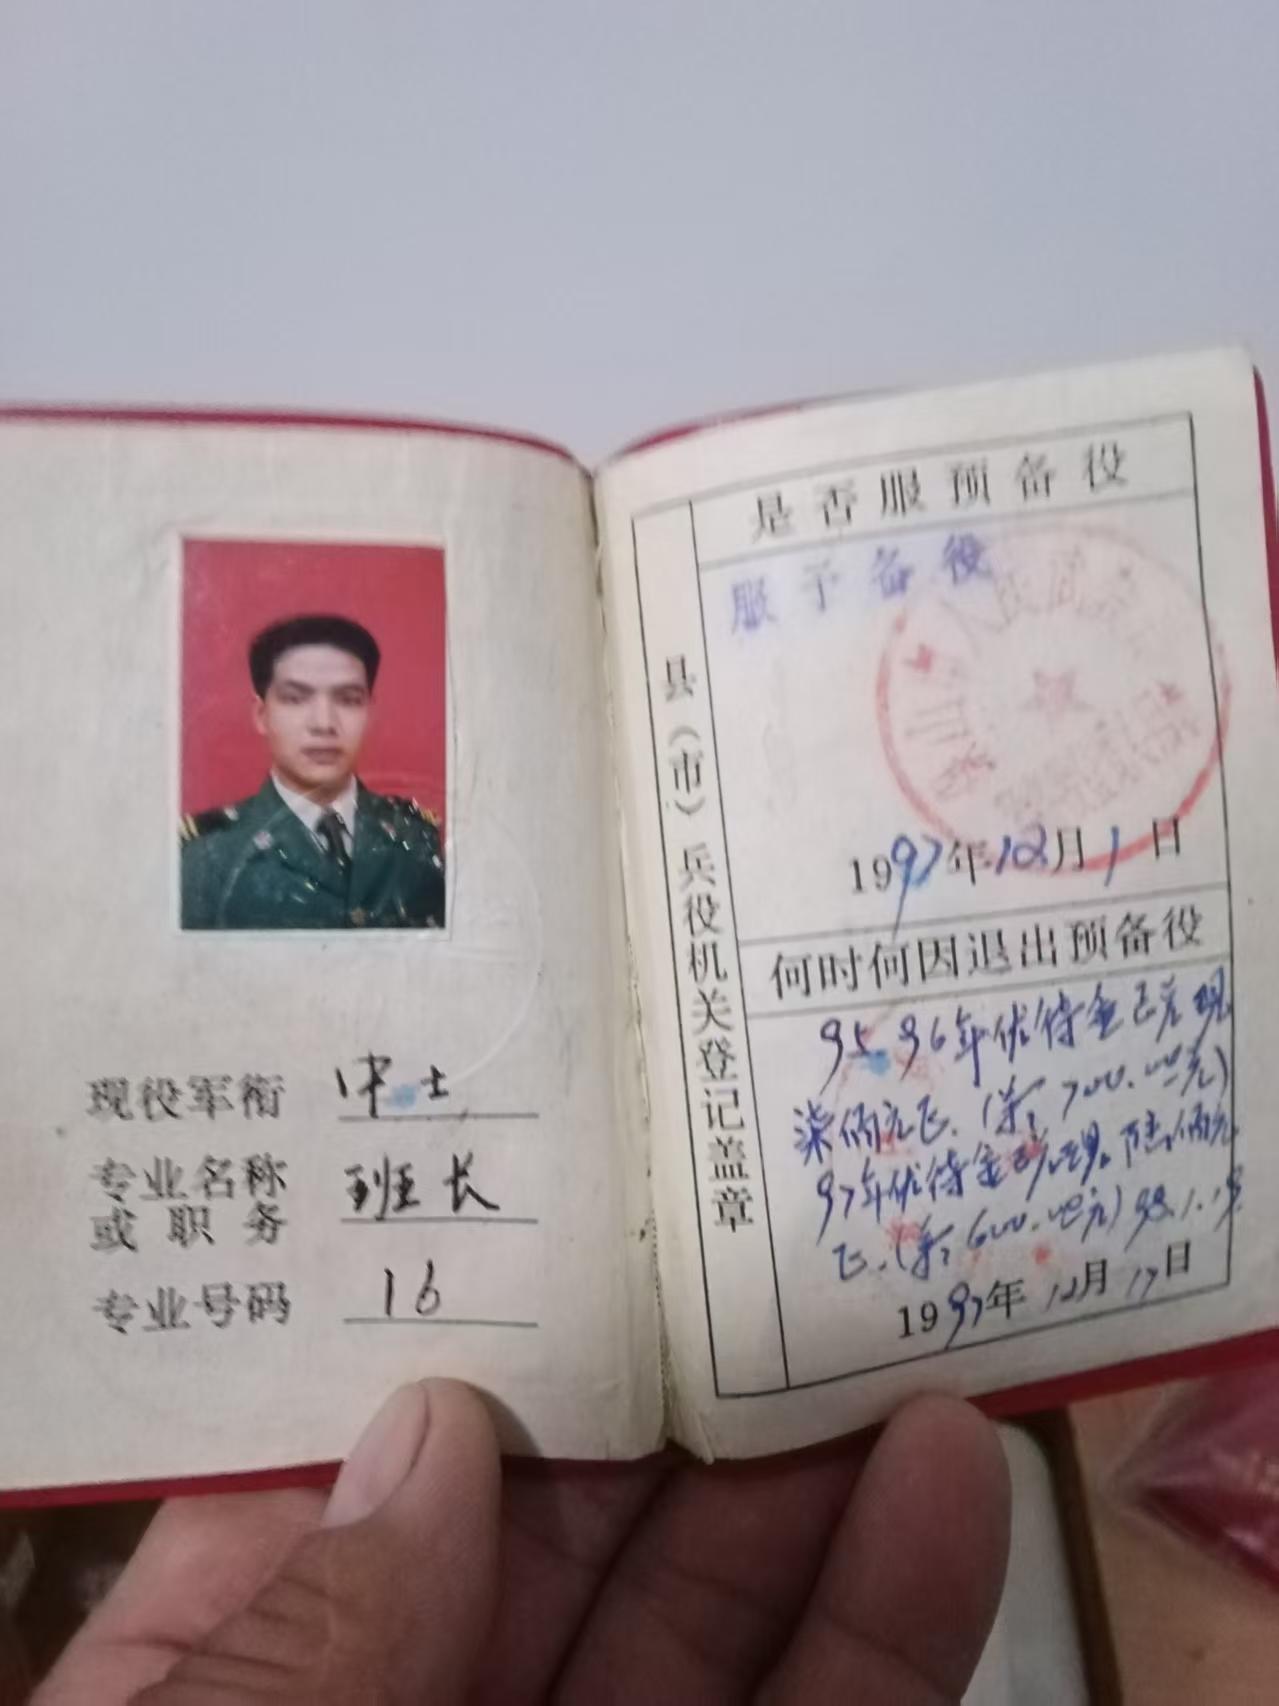 现役军衔 中士
专业名称
或职务 班长
专业号码 16
县（市）兵役机关登记盖章
是否服预备役
服予备役
1997年12月1日
何时何因退出预备役
95.96年优待金已
柒佰元正.(¥:700.00元)
97年优待金 陆佰元
正.(¥:600.00元) 98.1.19
1997年12月17日